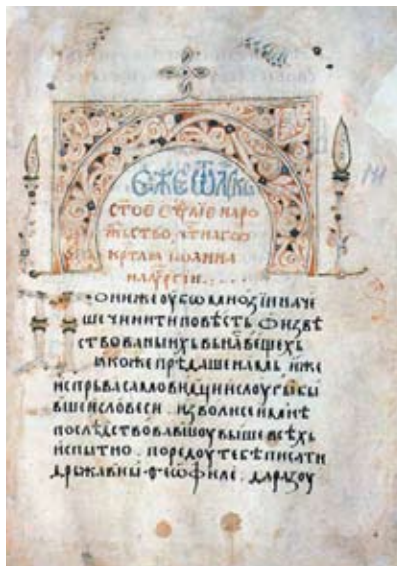 еже ѿ лꙋкы
стое еѵⷢ҇лїе наро
жьство, чтнаго
крⷭ҇тлꙗ іѡанна
на лѵⷮргїи
Понїеже оубѡ мноѕїи наче
ше чинити повѣсть ѡ извѣ
ствованыихь вь на вещехь
ꙗкоже прѣдаше намь иже
испрьва самовидци и слоугы бы
вшеи словеси. изволисе и мнѣ
послѣдствовавшоу выше всѣхь
испытно. по редоу тебѣ писати
дрьжавны ѳеѡфиле. да разоу